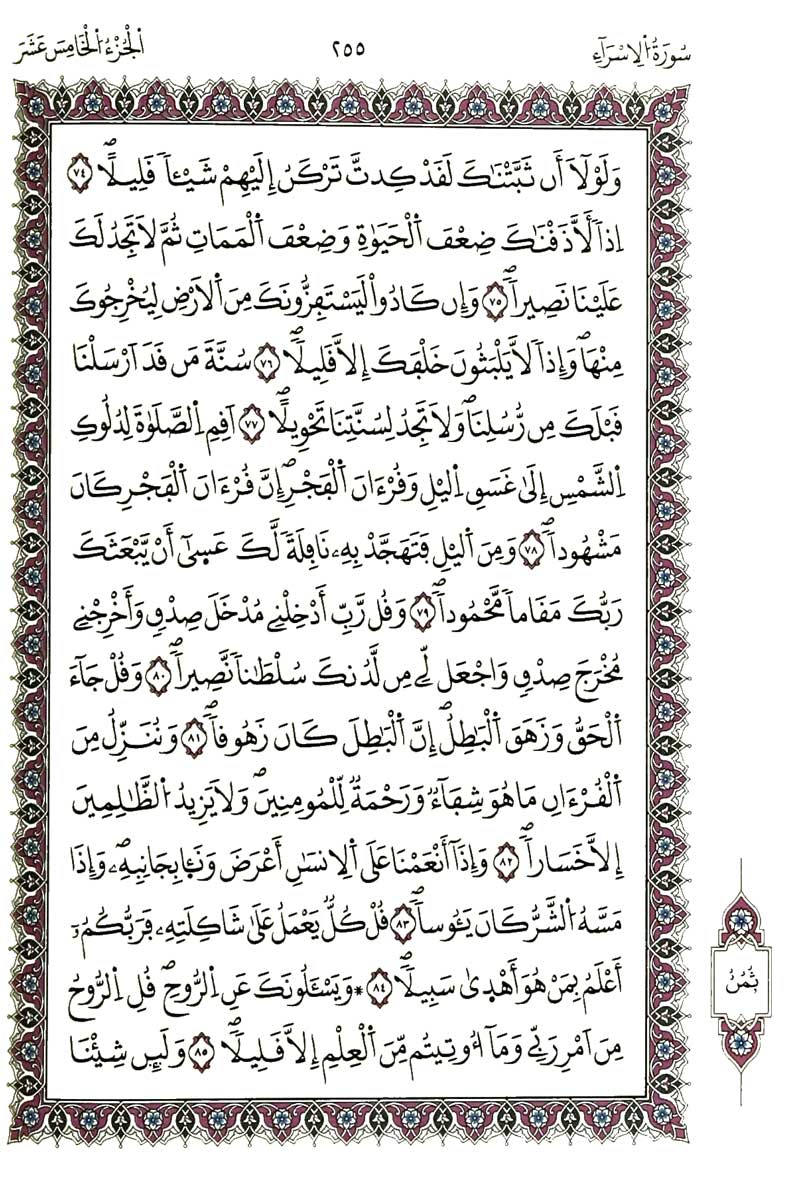 سُورَةُ اُلِاسْرَآءِ ٢٥٥ اَلْجُزْءُ اُلْخَامِسَ عَشَرَ
وَلَوْلَآ أَن ثَبَّتْنَٰكَ لَقَدْ كِدتَّ تَرْكَنُ إِلَيْهِمْ شَيْـٔاً قَلِيلًاۖ ٧٤
اِذاً لَّأَذَقْنَٰكَ ضِعْفَ اَلْحَيَوٰةِ وَضِعْفَ اَلْمَمَاتِ ثُمَّ لَا تَجِدُ لَكَ
عَلَيْنَا نَصِيراًۖ ٧٥ وَإِن كَادُواْ لَيَسْتَفِزُّونَكَ مِنَ اَلَارْضِ لِيُخْرِجُوكَ
مِنْهَاۖ وَإِذاً لَّا يَلْبَثُونَ خَلْفَكَ إِلَّا قَلِيلًاۖ ٧٦ سُنَّةَ مَن قَدَ اَرْسَلْنَا
قَبْلَكَ مِن رُّسُلِنَاۖ وَلَا تَجِدُ لِسُنَّتِنَا تَحْوِيلًاۖ ٧٧ اَقِمِ اِلصَّلَوٰةَ لِدُلُوكِ
اِلشَّمْسِ إِلَىٰ غَسَقِ اِلَيْلِ وَقُرْءَانَ اَلْفَجْرِۖ إِنَّ قُرْءَانَ اَلْفَجْرِ كَانَ
مَشْهُوداًۖ ٧٨ وَمِنَ اَلَيْلِ فَتَهَجَّدْ بِهِۦ نَافِلَةً لَّكَ عَسَىٰٓ أَنْ يَّبْعَثَكَ
رَبُّكَ مَقَاماً مَّحْمُوداًۖ ٧٩ وَقُل رَّبِّ أَدْخِلْنِے مُدْخَلَ صِدْقٍ وَأَخْرِجْنِے
مُخْرَجَ صِدْقٍ وَاجْعَل لِّے مِن لَّدُنكَ سُلْطَٰناً نَّصِيراًۖ ٨٠ وَقُلْ جَآءَ
اَلْحَقُّ وَزَهَقَ اَلْبَٰطِلُۖ إِنَّ اَلْبَٰطِلَ كَانَ زَهُوقاًۖ ٨١ وَنُنَزِّلُ مِنَ
اَلْقُرْءَانِ مَا هُوَ شِفَآءٌ وَرَحْمَةٌ لِّلْمُومِنِينَۖ وَلَا يَزِيدُ اُلظَّٰلِمِينَ
إِلَّا خَسَاراًۖ ٨٢ وَإِذَآ أَنْعَمْنَا عَلَى اَلِانسَٰنِ أَعْرَضَ وَنَـَٔا بِجَانِبِهِۦۖ وَإِذَا
مَسَّهُ اُلشَّرُّ كَانَ يَـُٔوساًۖ ٨٣ قُلْ كُلٌّ يَعْمَلُ عَلَىٰ شَاكِلَتِهِۦ فَرَبُّكُمُۥٓ
أَعْلَمُ بِمَنْ هُوَ أَهْدَىٰ سَبِيلًاۖ ٨٤ ۞ وَيَسْـَٔلُونَكَ عَنِ اِلرُّوحِۖ قُلِ اِلرُّوحُ
مِنَ اَمْرِ رَبِّے وَمَآ أُوتِيتُم مِّنَ اَلْعِلْمِ إِلَّا قَلِيلًاۖ ٨٥ وَلَئِن شِئْنَا
ثُمُنُ